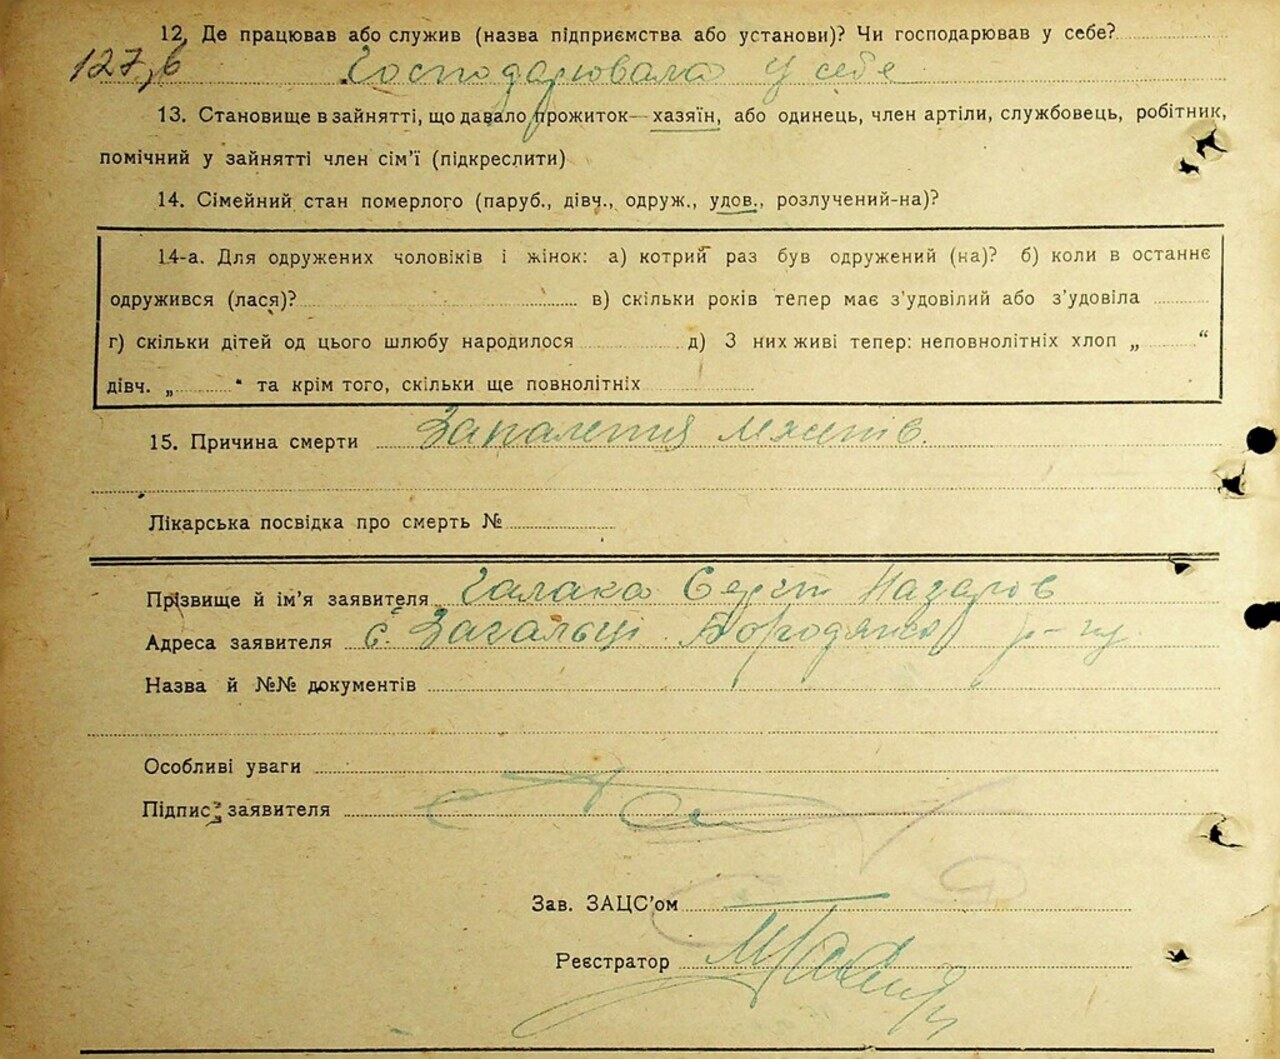 12, Де працював або служив (назва підприємства або установи)? Чи господарював у себе?
127, б Господарювала у себе
13. Становище в зайнятті, що давало прожиток— хазяїн, або одинець, член артілі, службовець, робітник,
помічний у зайнятті член сім'ї (підкреслити)
14. Сімейний стан померлого (паруб., дівч., одруж., удов., розлучений-на)?
14-а. Для одружених чоловіків і жінок: а) котрий раз був одружений (на)? б) коли в останнє
одружився (лася)? в) скільки років тепер має з'удовілий або з'удовіла
г) скільки дітей од цього шлюбу народилося д) З них живі тепер: неповнолітніх хлоп „ “
дівч. „ “ та крім того, скільки ще повнолітніх
15. Причина смерти Запалення
Лікарська посвідка про смерть №
Прізвище й ім'я заявителя Галака Сергій Назаров
Адреса заявителя с. Загальці Бородянськ р-ну
Назва й №№ документів
Особливі уваги
Підпис заявителя
Зав. ЗАЦС'ом
Реєстратор